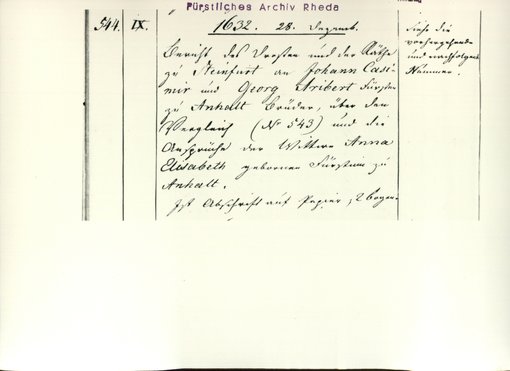 Fürstliches Archiv Rheda
544. IX. 1632. 28. Dezemb.
Bericht des Drosten und der Räthe
zu Steinfurt an Johann Casi-
mir und Georg Aribert Fürsten
zu Anhalt Brüder, über den
Vergleich (No 543) und die
Ansprüche der Wittwe Anna
Elisabeth gebornen Fürstin zu
Anhalt.
Ist Abschrift auf Papier, 2 Bogen.
Siehe die
vorhergehende
und nachfolgende
Nummer.